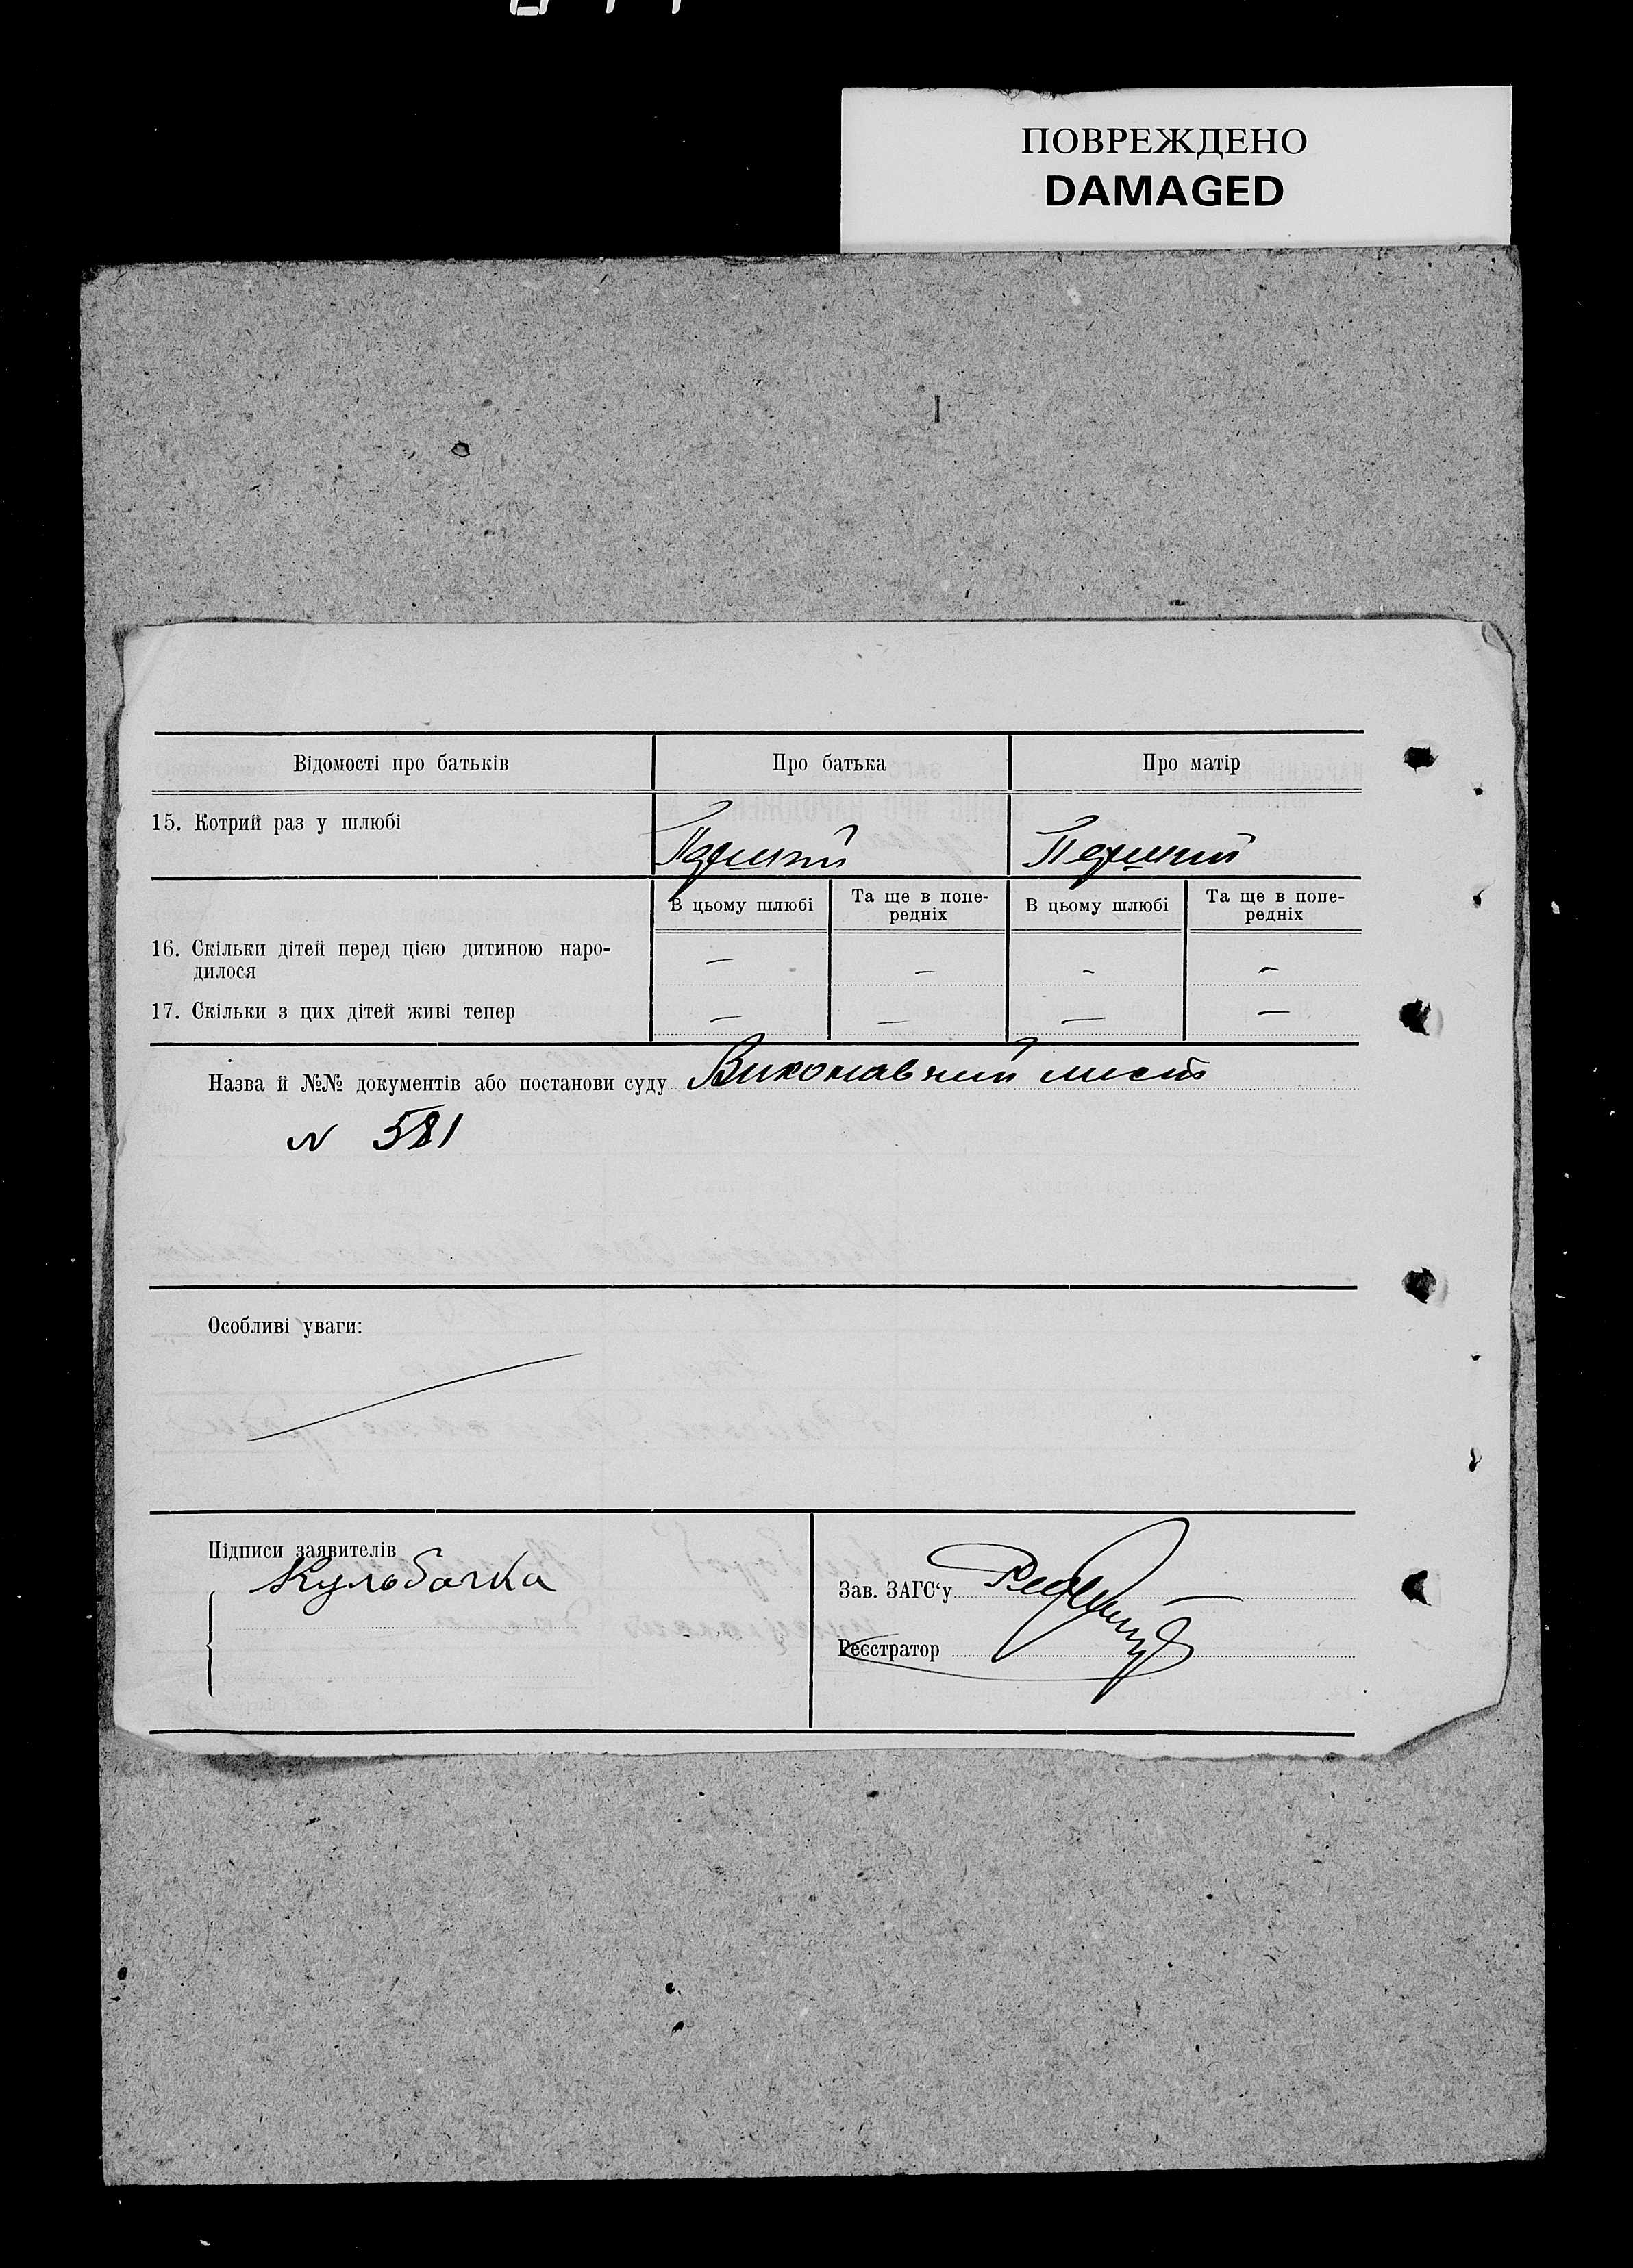 ПОВРЕЖДЕНО
DAMAGED
Відомості про батьків Про батька Про матір
15. Котрий раз у шлюбі Перший Перший
В цьому шлюбі Та ще в попе-редніх В цьому шлюбі Та ще в попе-редніх
16. Скільки дітей перед цією дитиною наро- — — — —
дилося
17. Скільки з цих дітей живі тепер — — — —
Назва й №№ документів або постанови суду Виконавчий лист
N 581
Особливі уваги:
Підписи заявителів
Кульбачка
Зав. ЗАГС‘у
Реєстратор